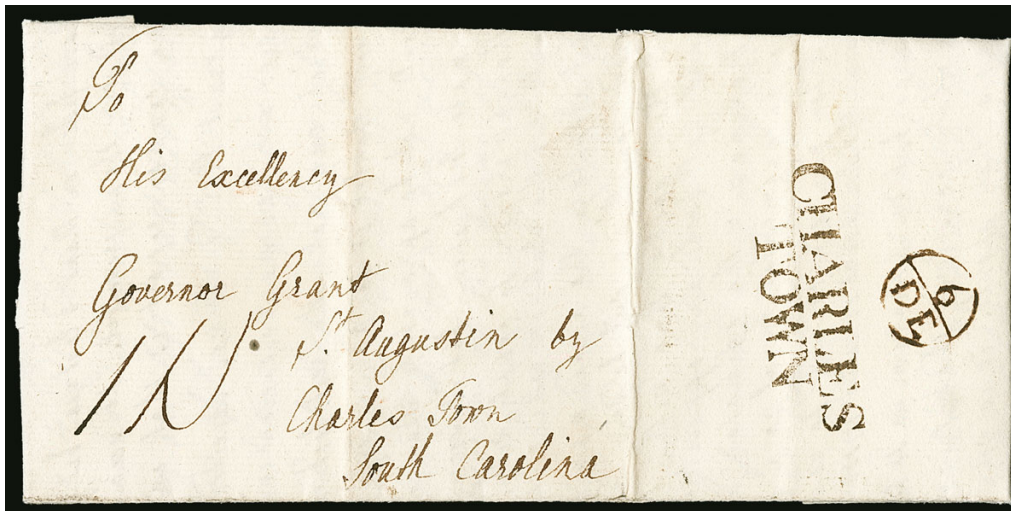 To
His Excellency
Governor Grant
St. Augustin by
Charles Town
South Carolina
CHARLES
TOWN
6
DE